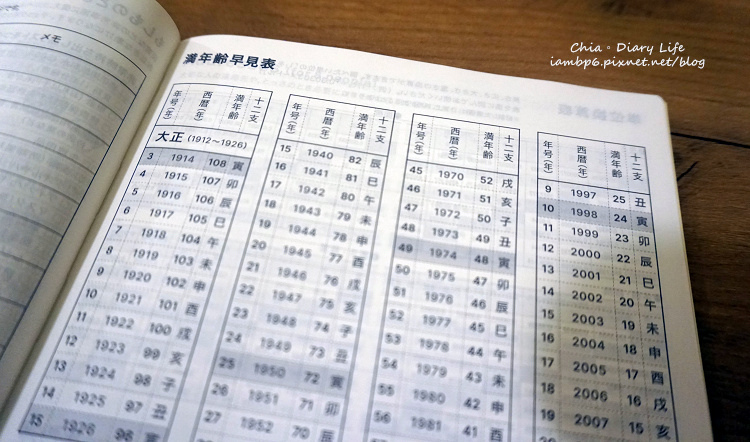 メモ
満年齢早見表
Chia。Diary Life
iambp6.pixnet.net/blog
年号(年) 西暦(年) 満年齢 十二支
大正 (1912～1926)
3 1914 108 寅
4 1915 107 卯
5 1916 106 辰
6 1917 105 巳
7 1918 104 午
8 1919 103 未
9 1920 102 申
10 1921 101 酉
11 1922 100 戌
12 1923 99 亥
13 1924 98 子
14 1925 97 丑
15 1926 96 寅
年号(年) 西暦(年) 満年齢 十二支
15 1940 82 辰
16 1941 81 巳
17 1942 80 午
18 1943 79 未
19 1944 78 申
20 1945 77 酉
21 1946 76 戌
22 1947 75 亥
23 1948 74 子
24 1949 73 丑
25 1950 72 寅
26 1951 71 卯
27 1952 70 辰
年号(年) 西暦(年) 満年齢 十二支
45 1970 52 戌
46 1971 51 亥
47 1972 50 子
48 1973 49 丑
49 1974 48 寅
50 1975 47 卯
51 1976 46 辰
52 1977 45 巳
53 1978 44 午
54 1979 43 未
55 1980 42 申
56 1981 41 酉
年号(年) 西暦(年) 満年齢 十二支
9 1997 25 丑
10 1998 24 寅
11 1999 23 卯
12 2000 22 辰
13 2001 21 巳
14 2002 20 午
15 2003 19 未
16 2004 18 申
17 2005 17 酉
18 2006 16 戌
19 2007 15 亥